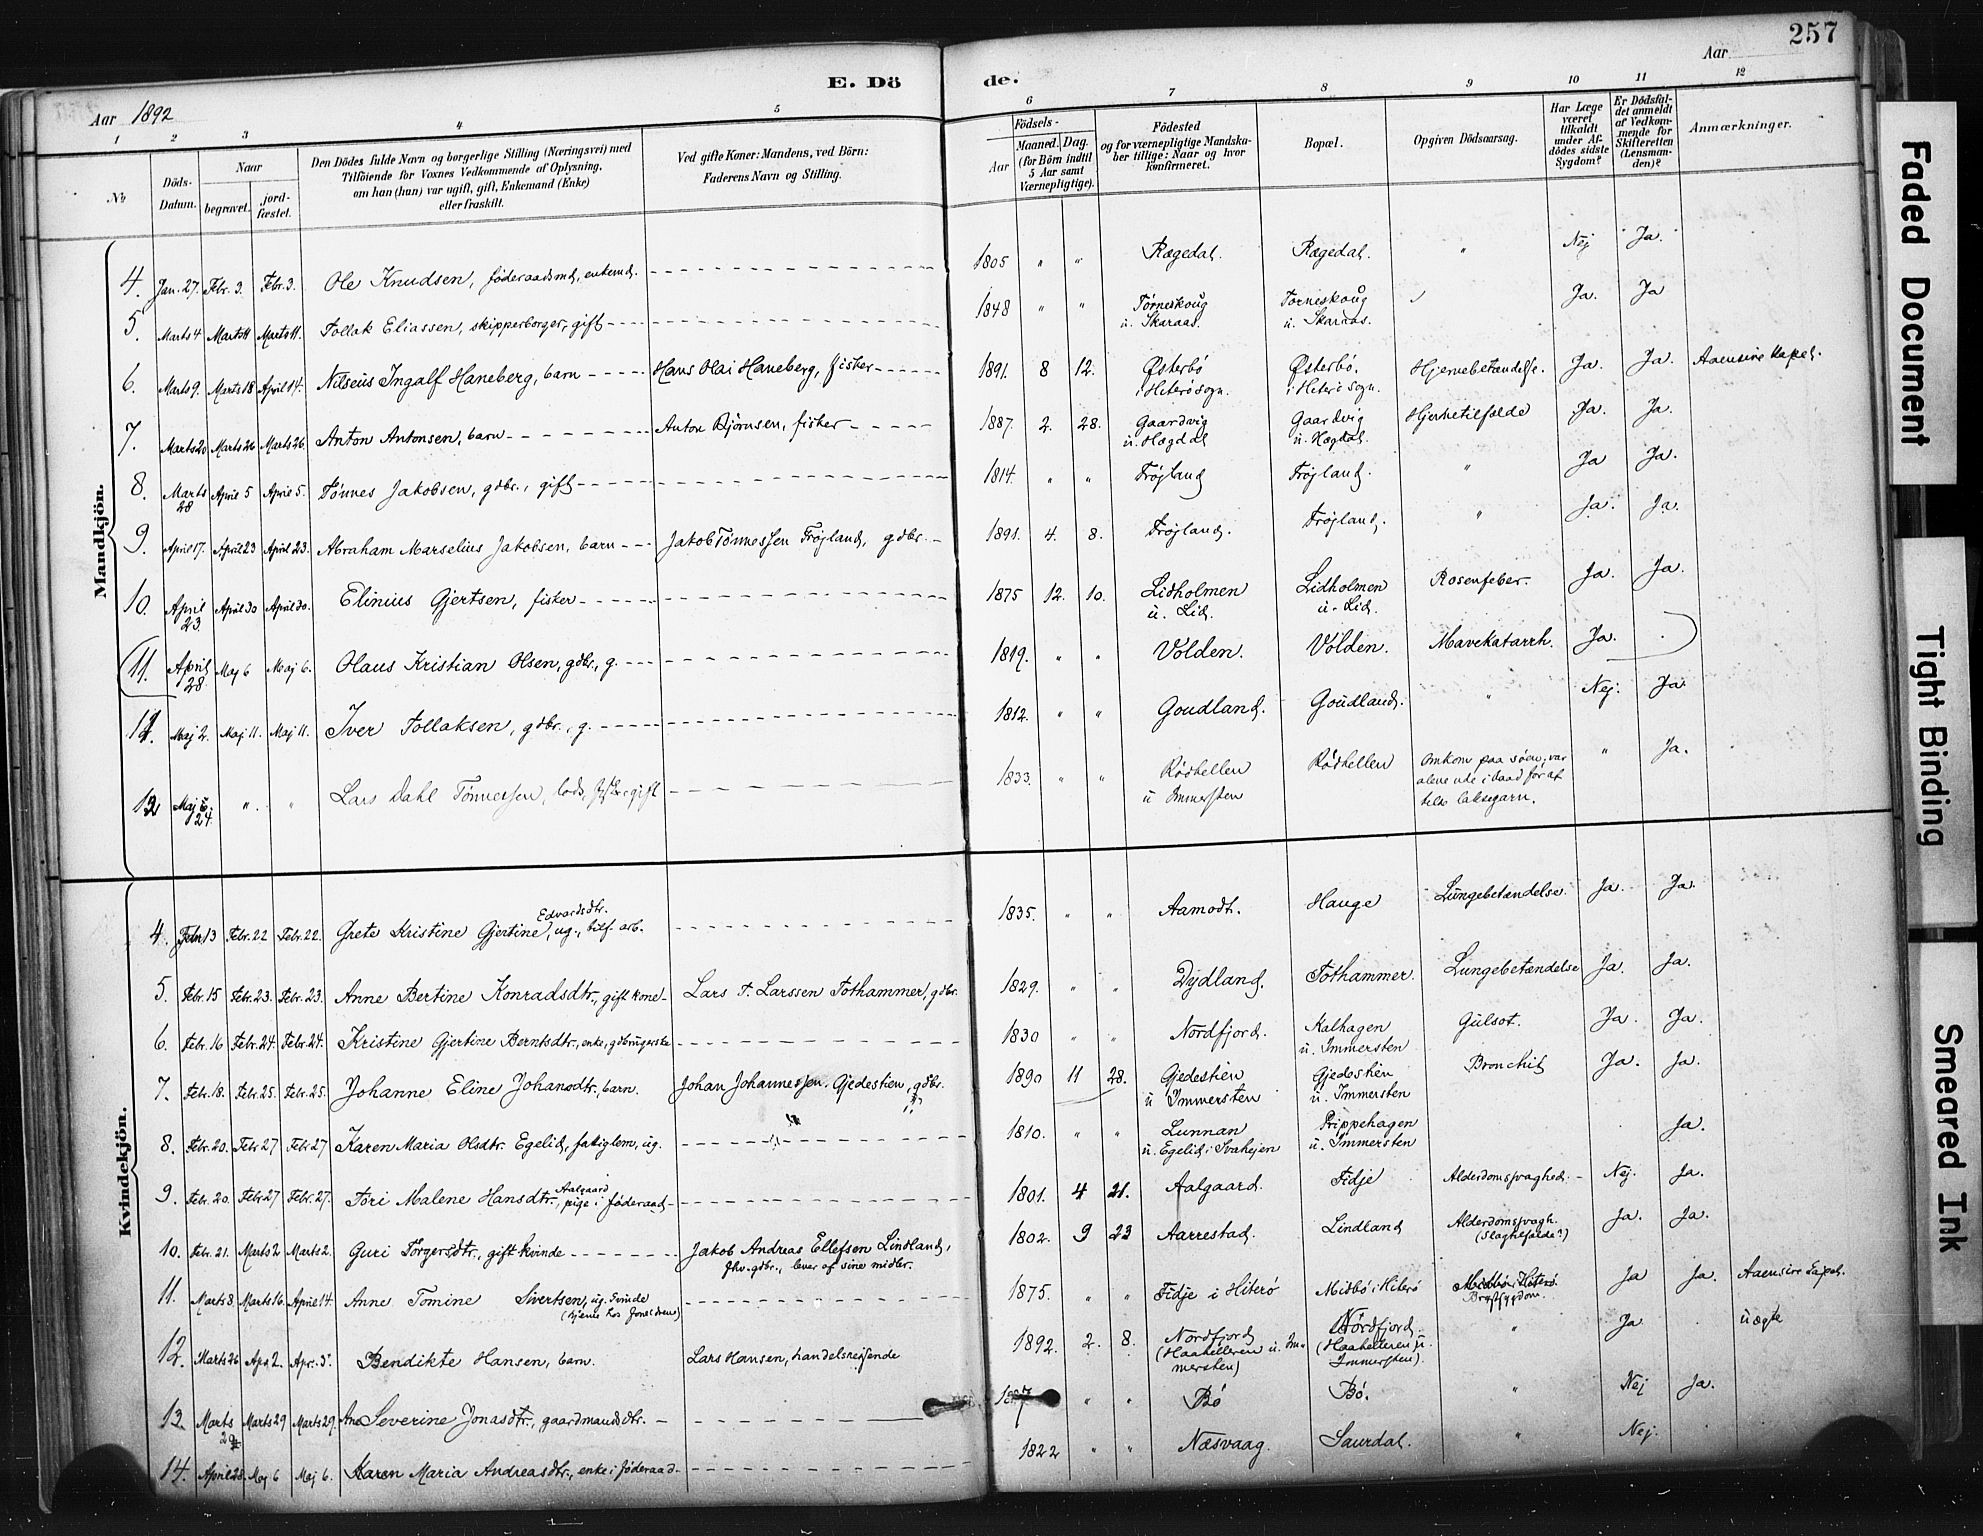 257
E. Dö de.
Aar 1892
Aar
1 2 3 4 5 6 7 8 9 10 11 12
No
Döds-Datum.
Naar
begravet.
jord-fæstet.
Den Dödes fulde Navn og borgerlige Stilling (Næringsvei) med
Tilföiende for Voxnes Vedkommende af Oplysning,
om han (hun) var ugift, gift, Enkemand (Enke)
eller fraskilt.
Ved gifte Koner: Mandens, ved Börn:
Faderens Navn og Stilling.
Födsels-
Aar
Maaned. Dag.
(for Börn indtil
5 Aar samt
Værnepligtige).
Födested
og for værnepligtige Mandska-
ber tillige: Naar og hvor
konfirmeret.
Bopæl.
Opgiven Dödsaarsag.
Har Læge
været
tilkaldt
under Af-
dödes sidste
Sygdom?
Er Dödsfal-
det anmeldt
af Vedkom-
mende for
Skifteretten
(Lensman-
den)?
Anmærkninger.
Mandkjön.
4. Jan. 27. Febr. 3. Febr. 3. Ole Knudsen, føderaadsmd, enkemd. 1805 " " Rægedal. Rægedal. " Nej Ja.
5. Marts 4 Marts 11 Marts 11. Tollak Eliassen, skipperborger, gift 1848 " " Torneskoug u. Skaraas. Torneskoug u. Skaraas. Ja. Ja
6. Marts 9. Marts 18 April 14. Nilseus Ingalf Haneberg, barn Hans Olai Haneberg, fisker 1891. 8 12. Østerbø i Hiterø sogn. Østerbø. i Hiterø sogn. Hjernebetændelse. Ja. Ja. Aaensire kapel.
7. Marts 20 Marts 26 Marts 26. Anton Antonsen, barn Anton Bjørnsen, fisker 1887. 2. 28. Gaardvig u. Hægdal Gaardvig u. Hægdal. Hjernetilfælde Ja. Ja.
8. Marts 28 April 5 April 5. Tønnes Jakobsen, gdbr., gift 1814. " " Frøjland Frøjland. " Ja Ja.
9. April 17. April 23 April 23. Abraham Marselius Jakobsen, barn Jakob Tønnessen Frøjland, gdbr. 1891. 4. 8. Frøjland. Frøjland. " Ja. Ja.
10. April 23. April 30 April 30. Elinius Gjertsen, fisker 1875 12. 10. Lidholmen u. Lid. Lidholmen u. Lid. Rosenfeber. Ja. Ja.
11. April 28. Maj 6 Maj 6. Olaus Kristian Olsen, gdbr., g. 1819. " " Volden. Volden. Mavekatarrh. Ja.
12. Maj 2. Maj 11. Maj 11. Iver Tollaksen, gdbr., g. 1812. " " Goudland. Goudland. " Nej. Ja
13 Maj 24. " " Lars Dahl Tønnessen, lods, gift 1833. " " Rødhellen u Immersten Rødhellen Omkom paa søen, var alene ude i baad for at tilse laksegarn. " Ja.
Kvindekjön.
4. Febr. 13 Febr. 22 Febr. 22. Grete Kristine Gjertine Edvardsdtr., ug., tilf. arb. 1835. " " Aamodt. Hauge Lungebetændelse. Ja. Ja.
5. Febr. 15 Febr. 23. Febr. 23. Anne Bertine Konradsdtr., gift kone Lars T. Larssen Tothammer, gdbr. 1829. " " Dydland. Tothammer. Lungebetændelse Ja. Ja.
6. Febr. 16 Febr. 24. Febr. 24. Kristine Gjertine Berntsdtr., enke, gdbrugerske 1830 " " Nordfjord. Kalhagen u. Immersten Gulsot. Ja. Ja.
7. Febr. 18. Febr. 25. Febr. 25. Johanne Eline Johansdtr., barn. Johan Johannessen Gjedestien, gdbr. 1890 11 28. Gjedestien u Immersten Gjedestien u. Immersten Bronchit Ja. Ja.
8. Febr. 20. Febr 27 Febr 27 Karen Maria Olsdtr. Egelid, fattiglem, ug. 1810. " " Lunnan u. Egelid i Svahejen Prippehagen u. Immersten Ja.
9. Febr. 20. Febr 27 Febr. 27. Tori Malene Hansdtr. Aalgaard, pige i føderaad 1801. 4 21. Aalgaard. Fidje Alderdomssvaghed. Nej. Ja.
10. Febr. 21. Marts 2 Marts 2. Guri Torgersdtr., gift kvinde Jakob Andreas Ellefsen Lindland, fhv. gdbr., lever af sine midler. 1802. 9 23 Aarrestad. Lindland Alderdomssvagh. (Slagtilfælde?) Ja. Ja.
11. Marts 8. Marts 16. April 14. Anne Tomine Sivertsen, ug. kvinde 1875. " " Fidje i Hiterø Midbø i Hiterø Brystsygdom. Ja Ja. Aaensire kapel.
12. Marts 26 Apr. 2. Apr. 3. Bendikte Hansen, barn. Lars Hansen, handelsrejsende 1892. 2. 8. Nordfjord (Haahelleren u. Immersten) Nordfjord (Haahelleren u. Immersten). " Ja uægte
13. Marts Marts 29 Marts 29. Ane Severine Jonasdtr., gaardmandsdtr. " " Bø Bø. " Nej Ja.
14. April 28. Maj 6 Maj 6. Karen Maria Andreasdtr., enke i føderaad 1822 " " Næsvaag. Saurdal. " Nej.
Faded Document
Tight Binding
Smeared Ink